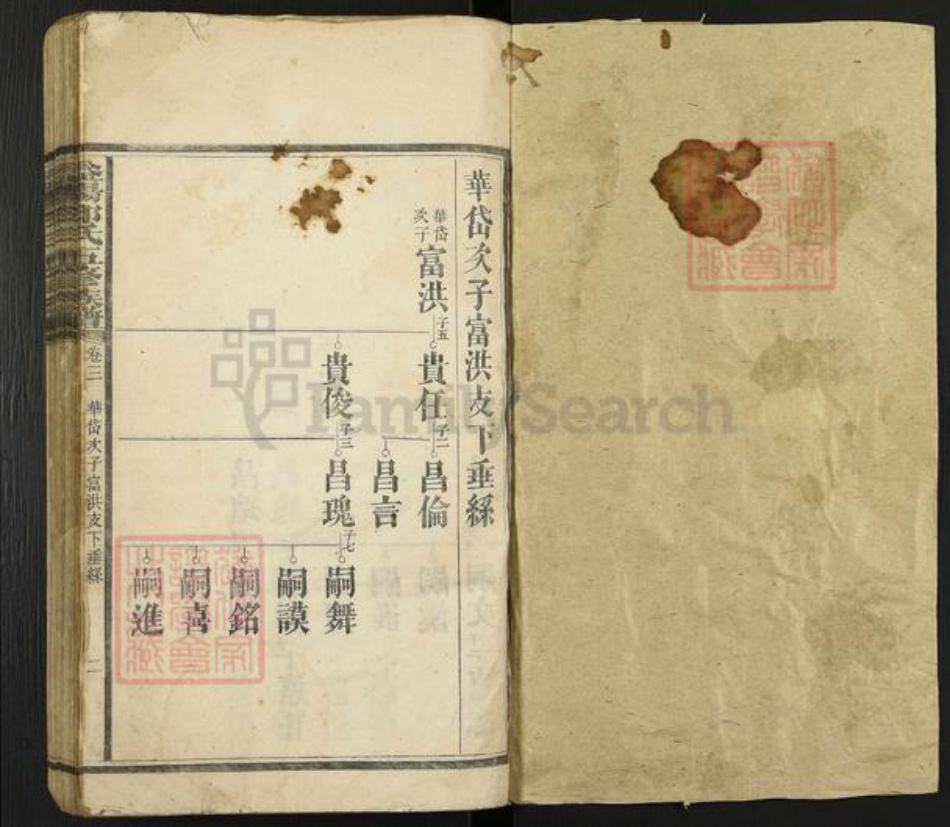 華岱次子富洪支下垂綵
華岱次子富洪子五
貴任子二
貴俊子三
昌倫
昌言
昌瑰子七
嗣舞
嗣謨
嗣銘
嗣喜
嗣進
氏五修族譜
卷三
華岱次子富洪支下垂綵
二
FamilySearch